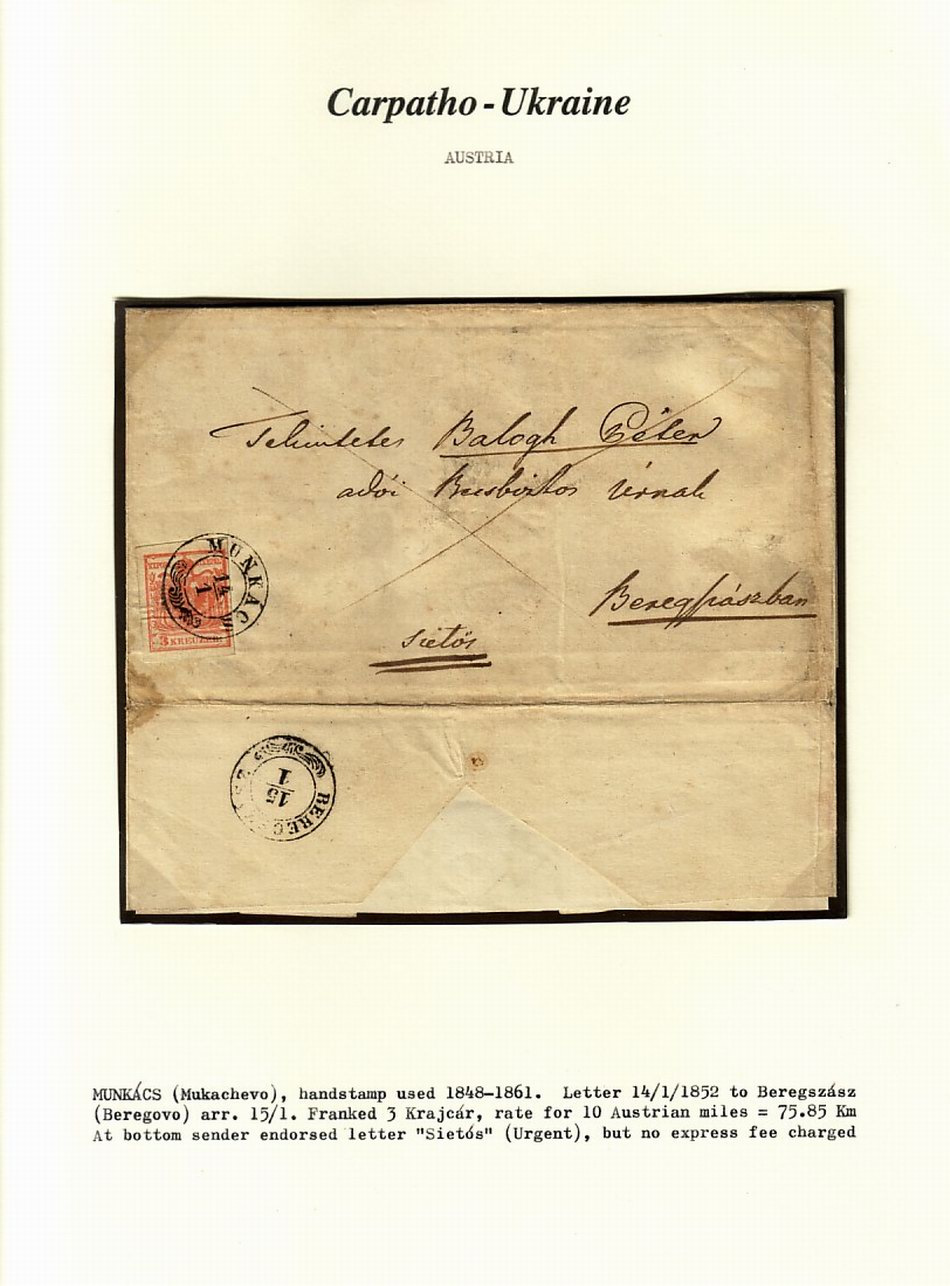 Carpatho - Ukraine
AUSTRIA
Tekintetes Balogh Péter
adói Urnak
Beregszászban
sietős
MUNKÁCS
14
1
3 KREUZER
BEREGSZÁSZ
15
1
MUNKÁCS (Mukachevo), handstamp used 1848-1861. Letter 14/1/1852 to Beregszász
(Beregovo) arr. 15/1. Franked 3 Krajcár, rate for 10 Austrian miles = 75.85 Km
At bottom sender endorsed letter "Sietós" (Urgent), but no express fee charged